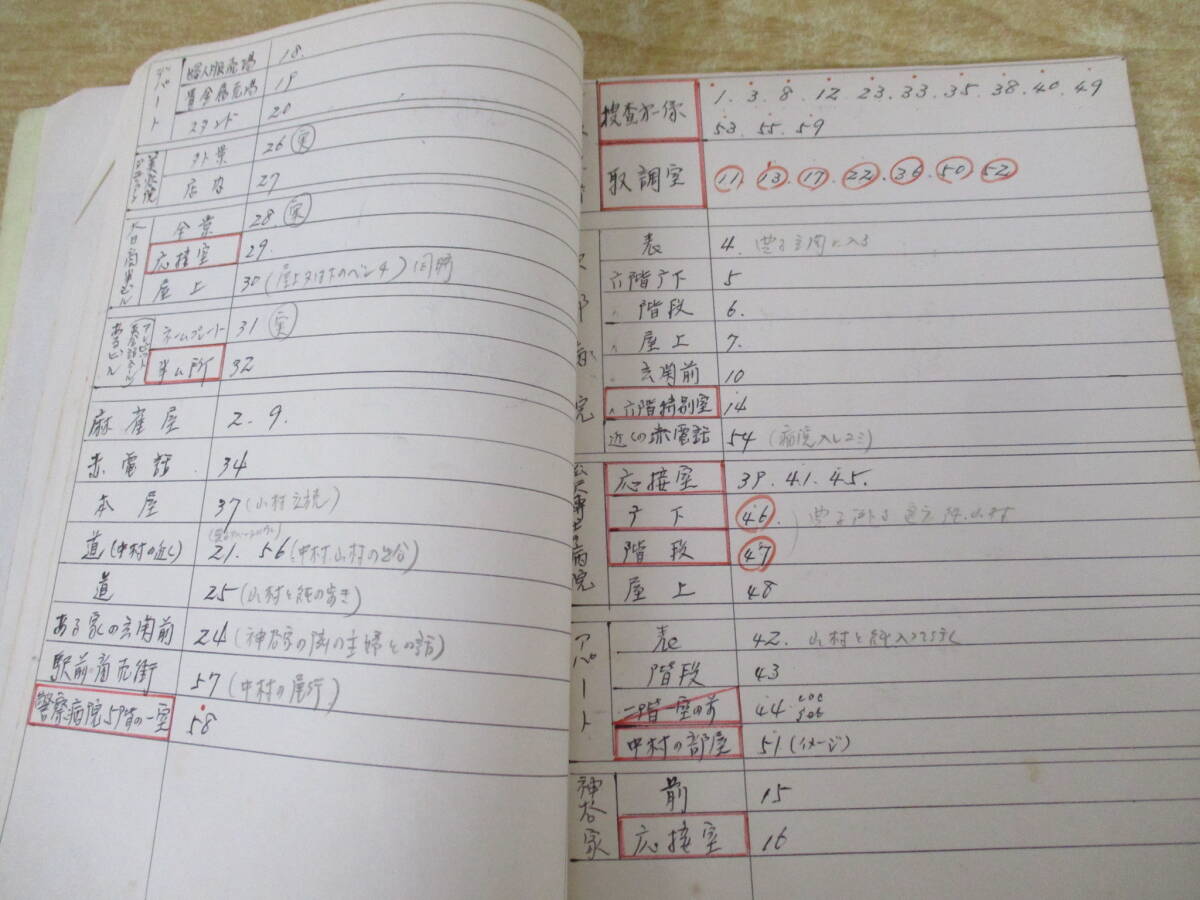 デパート
婦人服売場 18.
貴金属売場 19
スタンド 20
美容院
外景 26 実
店内 27
大日商事ビル
全景 28. 実
応接室 29.
屋上 30 (屋上 同時
あるビル
ネームプレート 31 実
事ム所 32
麻雀屋 2. 9.
赤電話 34
本屋 37 (山村立読)
道 (中村の近く) 21. 56 (中村、山村の出合)
道 25 (山村と純の歩き)
ある家の玄関前 24 (神谷家の隣の主婦との話)
駅前商店街 57 (中村の尾行)
警察病院5階の一室 58
捜査一係 1. 3. 8. 12. 23. 33. 35. 38. 40. 49
53. 55. 59
取調室 11. 13. 17. 22. 36. 50. 52
病院
表 4. 玄関に入る
六階廊下 5
〃 階段 6.
〃 屋上 7.
〃 玄関前 10
〃 六階特別室 14
近くの赤電話 54 (病院入レコミ)
病院
応接室 39. 41. 45.
廊下 46.
階段 47
屋上 48
アパート
表 42. 山村と純入って行く
階段 43
一階一室の前 44.
中村の部屋 51 (イメージ)
神谷家
前 15
応接室 16